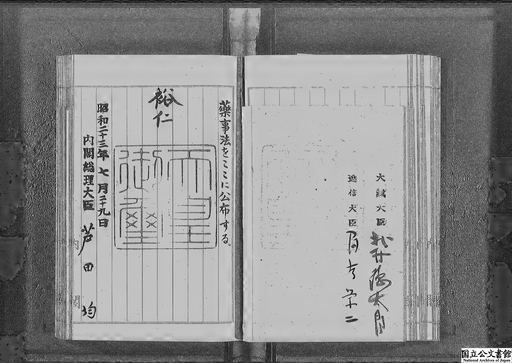 大藏大臣 北村徳太郎
逓信大臣 冨吉榮二
藥事法をここに公布する。
裕仁
天皇
御璽
昭和二十三年七月二十九日
内閣総理大臣 芦田均
国立公文書館
National Archives of Japan